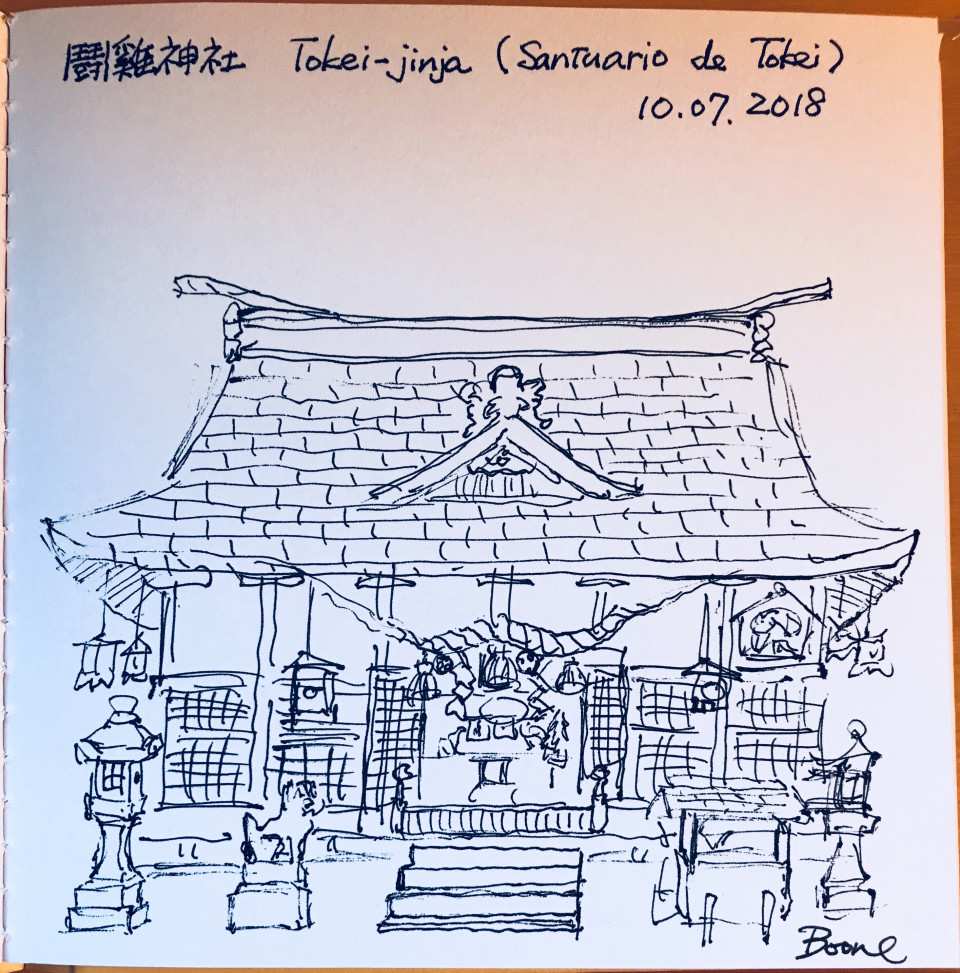 鬪雞神社 Tokei-jinja (Santuario de Tokei)
10.07.2018
Boone